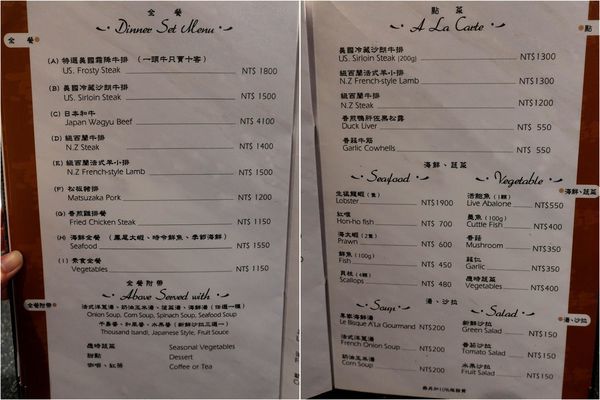 全餐
Dinner Set Menu
全 餐
(A) 特選美國霜降牛排 (一頭牛只賣十客)
US. Frosty Steak NT$ 1800
(B) 美國冷藏沙朗牛排
US. Sirloin Steak NT$ 1500
(C) 日本和牛
Japan Wagyu Beef NT$ 4100
(D) 紐西蘭牛排
N.Z Steak NT$ 1400
(E) 紐西蘭法式羊小排
N.Z French-style Lamb NT$ 1500
(F) 松板豬排
Matsuzaka Pork NT$ 1200
(G) 香煎雞排餐
Fried Chicken Steak NT$ 1150
(H) 海鮮全餐 (鳳尾大蝦、時令鮮魚、季節海鮮)
Seafood NT$ 1550
(I) 素食全餐
Vegetables NT$ 1150
全餐附帶
全餐附帶
Above Served with
法式洋蔥湯、奶油玉米湯、菠菜湯、海鮮湯 (四選一種)
Onion Soup, Corn Soup, Spinach Soup, Seafood Soup
千島醬、和風醬、水果醬 (新鮮沙拉三選一)
Thousand Isandl, Japanese Style, Fruit Souce
應時蔬菜 Seasonal Vegetables
甜點 Dessert
咖啡、紅茶 Coffee or Tea
點菜
A La Carte
點
美國冷藏沙朗牛排
US. Sirloin Steak (200g) NT$1300
紐西蘭法式羊小排
N.Z French-style Lamb NT$1300
紐西蘭牛排
N.Z Steak NT$1200
香煎鴨肝佐黑松露
Duck Liver NT$ 550
香蒜牛筋
Garlic Cowhells NT$ 550
海鮮、蔬菜
Seafood
生猛龍蝦 (隻)
Lobster NT$1900
紅喉
Hon-ho fish NT$ 700
海大蝦 (2隻)
Prawn NT$ 600
鮮魚 (100g)
Fish NT$ 450
貝柱 (4顆)
Scallops NT$ 480
Vegetable
海鮮、蔬菜
活鮑魚 (1顆)
Live Abalone NT$550
墨魚 (100g)
Cuttle Fish NT$400
香菇
Mushroom NT$350
蒜仁
Garlic NT$350
應時蔬菜
Vegetables NT$400
湯、沙拉
湯、沙拉
Soup
專家海鮮湯
Le Bisque A'La Gourmand NT$200
法式洋蔥湯
French Onion Soup NT$200
奶油玉米湯
Corn Soup NT$200
Salad
新鮮沙拉
Green Salad NT$150
番茄沙拉
Tomato Salad NT$150
水果沙拉
Fruit Salad NT$150
需另加10%服務費